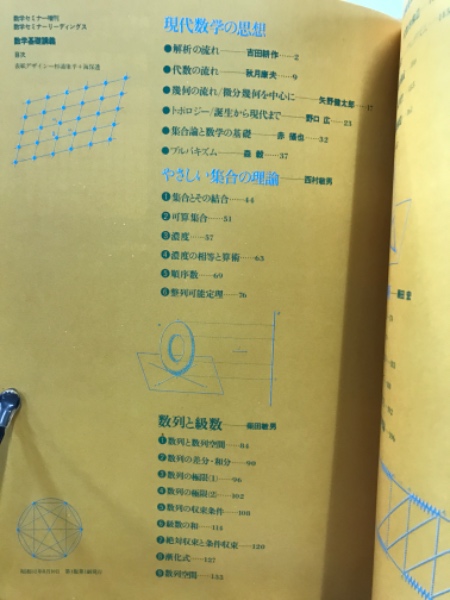 数学セミナー増刊
数学セミナーリーディングス
数学基礎講義
目次
現代数学の思想
●解析の流れ——吉田耕作……2
●代数の流れ——秋月康夫……9
●幾何の流れ/微分幾何を中心に——矢野健太郎……17
●トポロジー/誕生から現代まで——野口 広……23
●集合論と数学の基礎——赤 攝也……32
●ブルバキズム——森 毅……37
やさしい集合の理論——西村敏男
❶集合とその結合……44
❷可算集合……51
❸濃度……57
❹濃度の相等と算術……63
❺順序数……69
❻整列可能定理……76
数列と級数——柴田敏男
❶数列と数列空間……84
❷数列の差分・和分……90
❸数列の極限(1)……96
❹数列の極限(2)……102
❺数列の収束条件……108
❻級数の和……114
❼絶対収束と条件収束……120
❽漸化式……127
❾数列空間……133